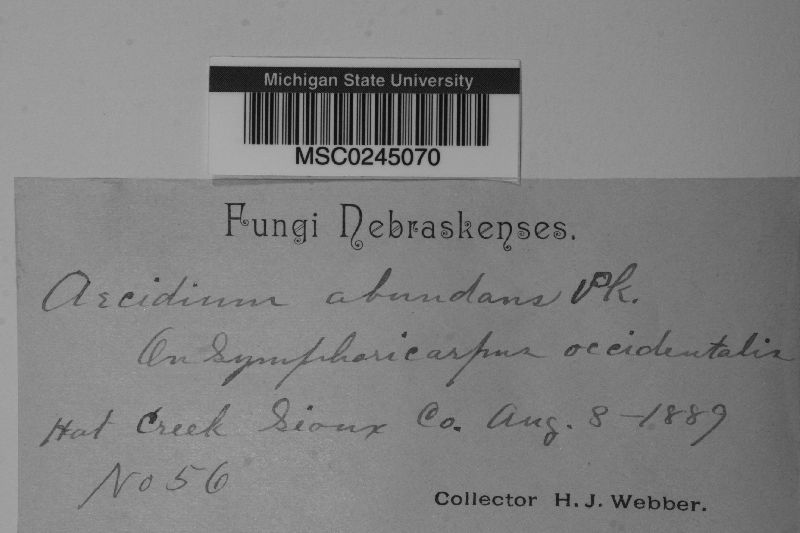 Michigan State University
MSC0245070
Fungi Nebraskenses.
Aecidium abundans Pk.
On Symphoricarpus occidentalis
Hat Creek Sioux Co. Aug. 8-1889
No 56
Collector H. J. Webber.